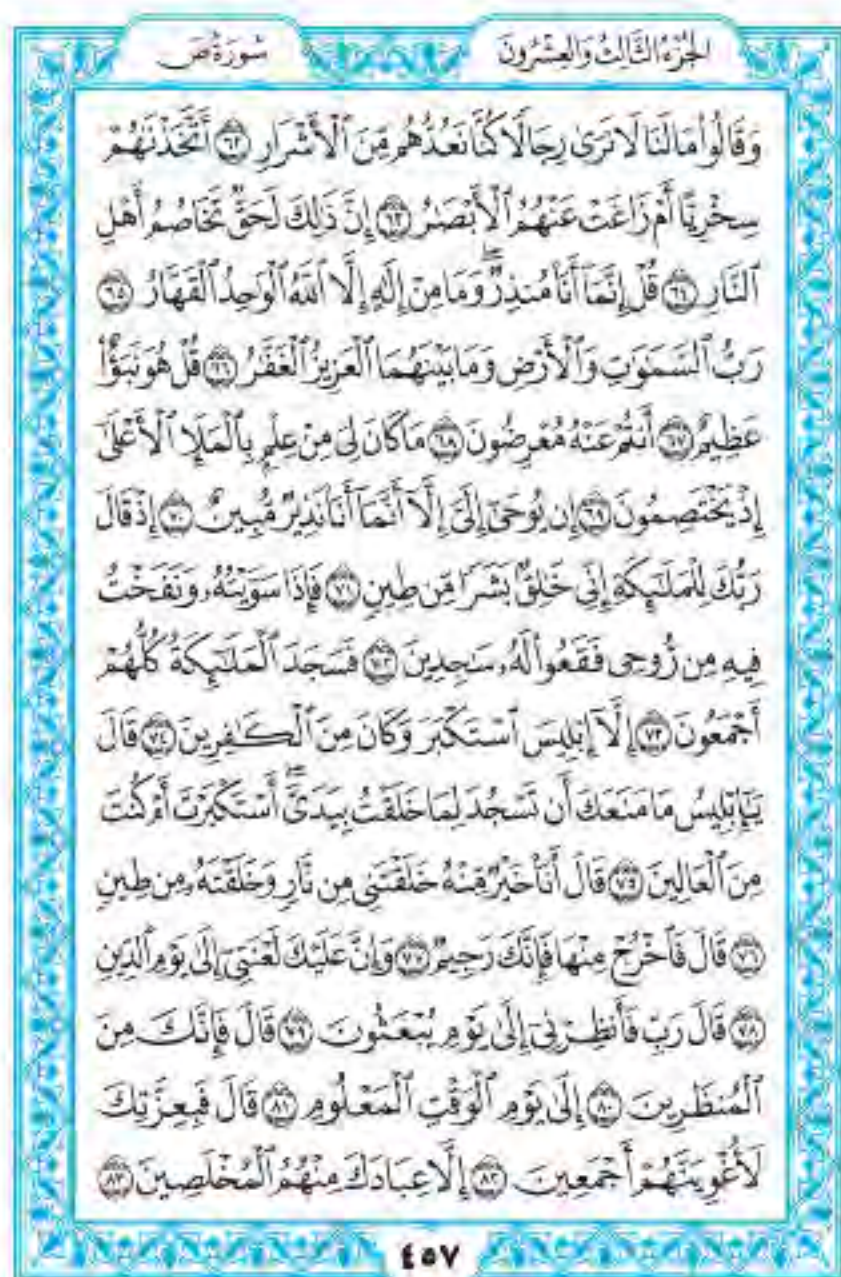 الجُزْءُ الثَّالِثُ وَالعِشْرُونَ
سُورَةُ صٓ
وَقَالُواْ مَا لَنَا لَا نَرَىٰ رِجَالًا كُنَّا نَعُدُّهُم مِّنَ ٱلْأَشْرَارِ ٦٢ أَتَّخَذْنَٰهُمْ
سِخْرِيًّا أَمْ زَاغَتْ عَنْهُمُ ٱلْأَبْصَٰرُ ٦٣ إِنَّ ذَٰلِكَ لَحَقٌّ تَخَاصُمُ أَهْلِ
ٱلنَّارِ ٦٤ قُلْ إِنَّمَآ أَنَا۠ مُنذِرٌ ۖ وَمَا مِنْ إِلَٰهٍ إِلَّا ٱللَّهُ ٱلْوَٰحِدُ ٱلْقَهَّارُ ٦٥
رَبُّ ٱلسَّمَٰوَٰتِ وَٱلْأَرْضِ وَمَا بَيْنَهُمَا ٱلْعَزِيزُ ٱلْغَفَّٰرُ ٦٦ قُلْ هُوَ نَبَؤٌاْ
عَظِيمٌ ٦٧ أَنتُمْ عَنْهُ مُعْرِضُونَ ٦٨ مَا كَانَ لِيَ مِنْ عِلْمٍۭ بِٱلْمَلَإِ ٱلْأَعْلَىٰٓ
إِذْ يَخْتَصِمُونَ ٦٩ إِن يُوحَىٰٓ إِلَيَّ إِلَّآ أَنَّمَآ أَنَا۠ نَذِيرٌ مُّبِينٌ ٧٠ إِذْ قَالَ
رَبُّكَ لِلْمَلَٰٓئِكَةِ إِنِّي خَٰلِقٌۢ بَشَرًا مِّن طِينٍ ٧١ فَإِذَا سَوَّيْتُهُۥ وَنَفَخْتُ
فِيهِ مِن رُّوحِي فَقَعُواْ لَهُۥ سَٰجِدِينَ ٧٢ فَسَجَدَ ٱلْمَلَٰٓئِكَةُ كُلُّهُمْ
أَجْمَعُونَ ٧٣ إِلَّآ إِبْلِيسَ ٱسْتَكْبَرَ وَكَانَ مِنَ ٱلْكَٰفِرِينَ ٧٤ قَالَ
يَٰٓإِبْلِيسُ مَا مَنَعَكَ أَن تَسْجُدَ لِمَا خَلَقْتُ بِيَدَيَّ ۖ أَسْتَكْبَرْتَ أَمْ كُنتَ
مِنَ ٱلْعَالِينَ ٧٥ قَالَ أَنَا۠ خَيْرٌ مِّنْهُ خَلَقْتَنِي مِن نَّارٍ وَخَلَقْتَهُۥ مِن طِينٍ
٧٦ قَالَ فَٱخْرُجْ مِنْهَا فَإِنَّكَ رَجِيمٌ ٧٧ وَإِنَّ عَلَيْكَ لَعْنَتِيٓ إِلَىٰ يَوْمِ ٱلدِّينِ
٧٨ قَالَ رَبِّ فَأَنظِرْنِيٓ إِلَىٰ يَوْمِ يُبْعَثُونَ ٧٩ قَالَ فَإِنَّكَ مِنَ
ٱلْمُنظَرِينَ ٨٠ إِلَىٰ يَوْمِ ٱلْوَقْتِ ٱلْمَعْلُومِ ٨١ قَالَ فَبِعِزَّتِكَ
لَأُغْوِيَنَّهُمْ أَجْمَعِينَ ٨٢ إِلَّا عِبَادَكَ مِنْهُمُ ٱلْمُخْلَصِينَ ٨٣
٤٥٧